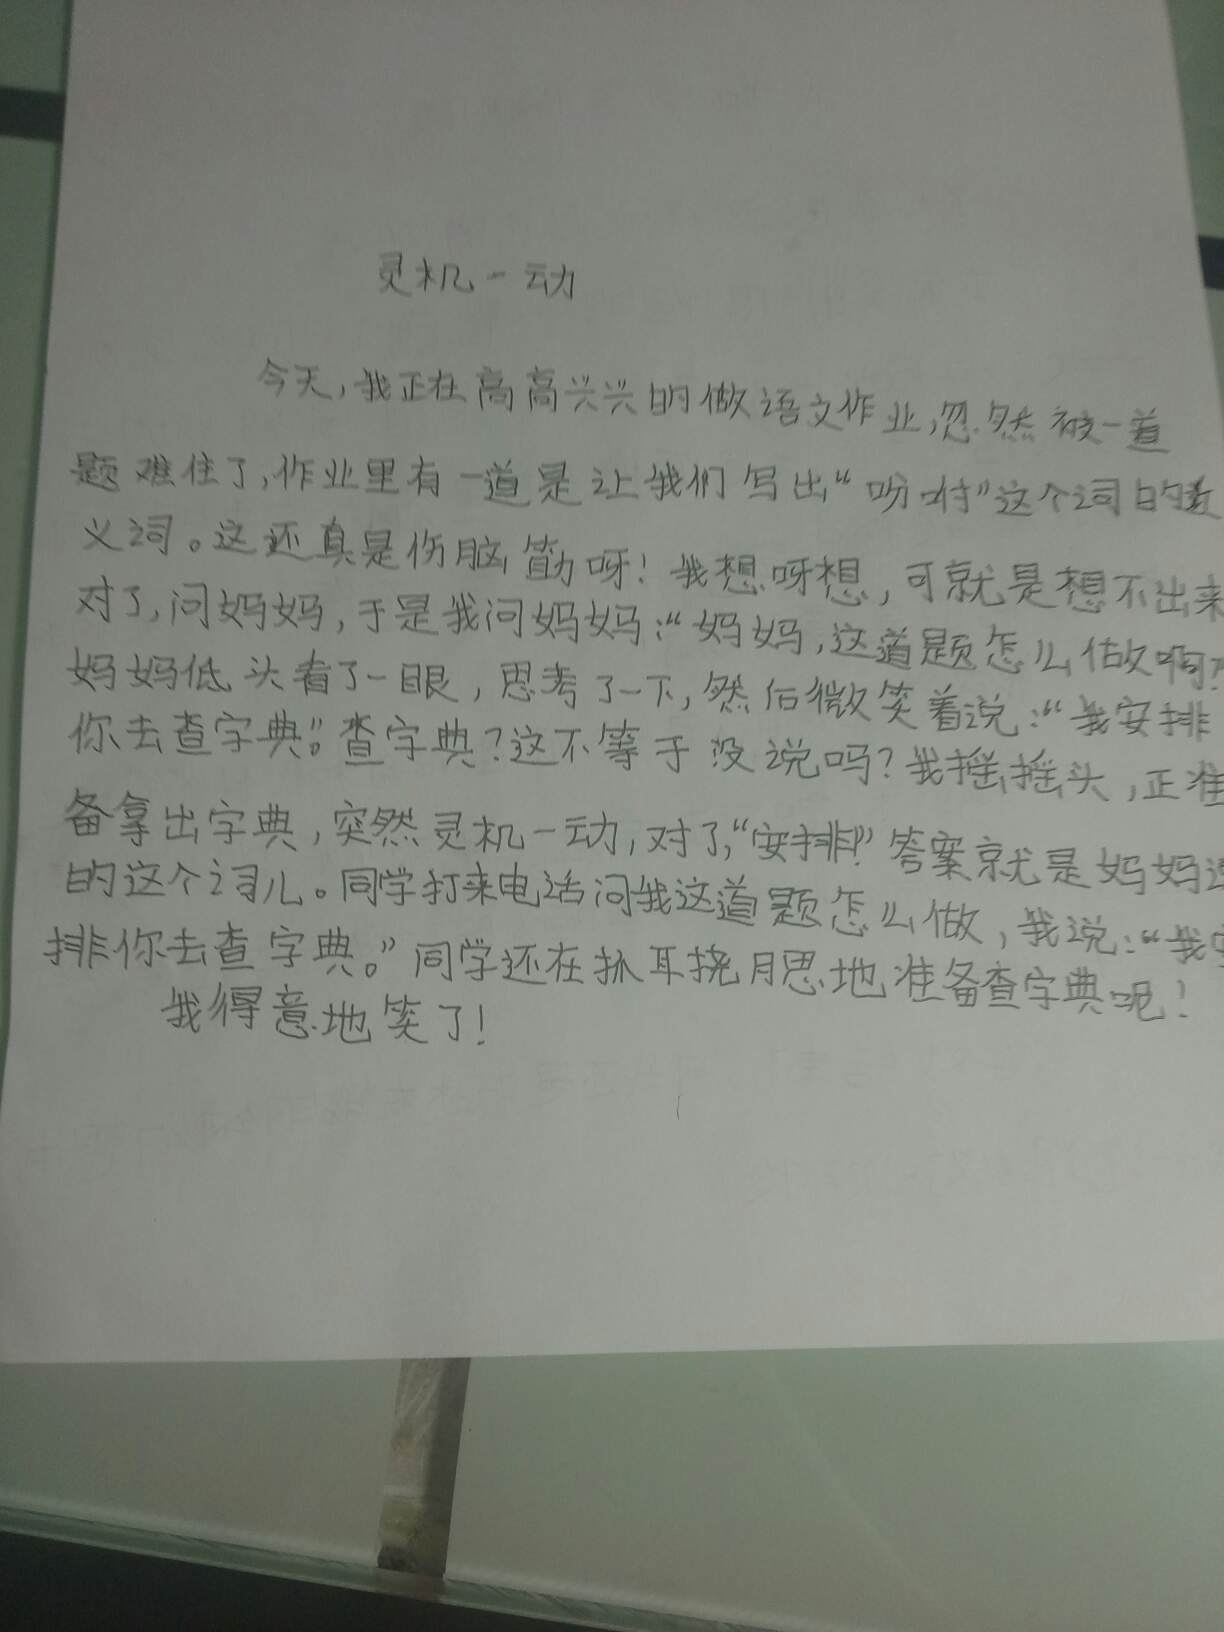 灵机一动
今天,我正在高高兴兴的做语文作业,忽然被一道
题难住了,作业里有一道是让我们写出“吩咐”这个词的
义词。这还真是伤脑筋呀!我想呀想,可就是想不出来
对了,问妈妈,于是我问妈妈:“妈妈,这道题怎么做啊?
妈妈低头看了一眼,思考了一下,然后微笑着说:“我安排
你去查字典。”查字典?这不等于没说吗?我摇摇头,正准
备拿出字典,突然灵机一动,对了,“安排!”答案就是妈妈说
的这个词儿。同学打来电话问我这道题怎么做,我说:“我安
排你去查字典。”同学还在抓耳挠腮地准备查字典呢!
我得意地笑了!